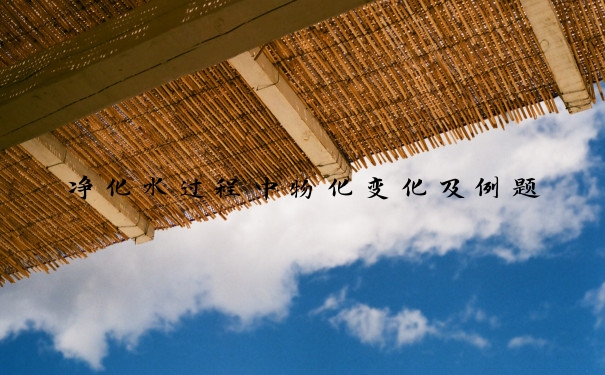 净化水过程中物化变化及例题